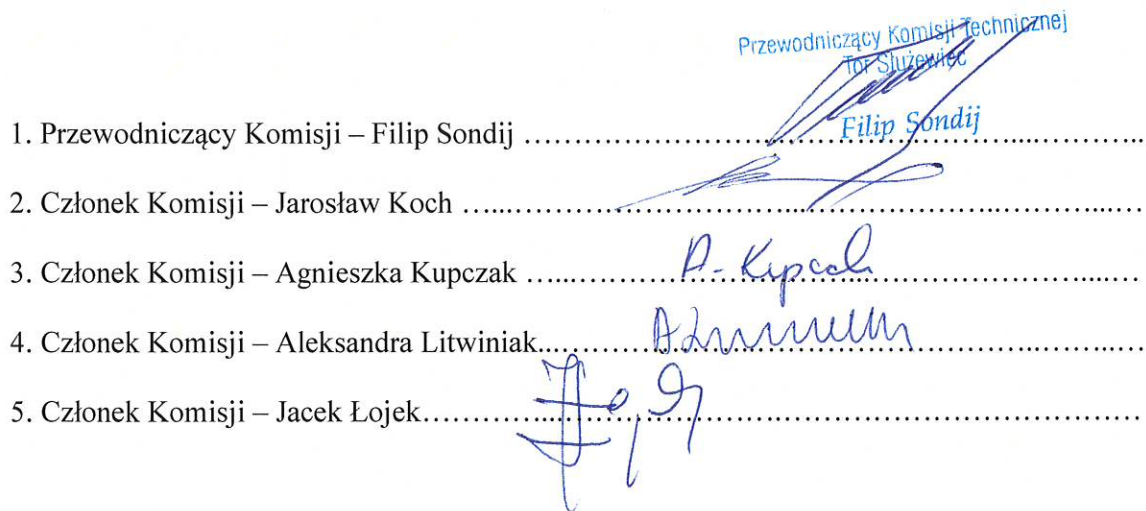 Przewodniczący Komisji Technicznej
Tor Służewiec
Filip Sondij
1. Przewodniczący Komisji – Filip Sondij ……………………………………………………
2. Członek Komisji – Jarosław Koch ……………………………………………………
3. Członek Komisji – Agnieszka Kupczak ……………………………………………………
A. Kupczak
4. Członek Komisji – Aleksandra Litwiniak……………………………………………………
5. Członek Komisji – Jacek Łojek……………………………………………………